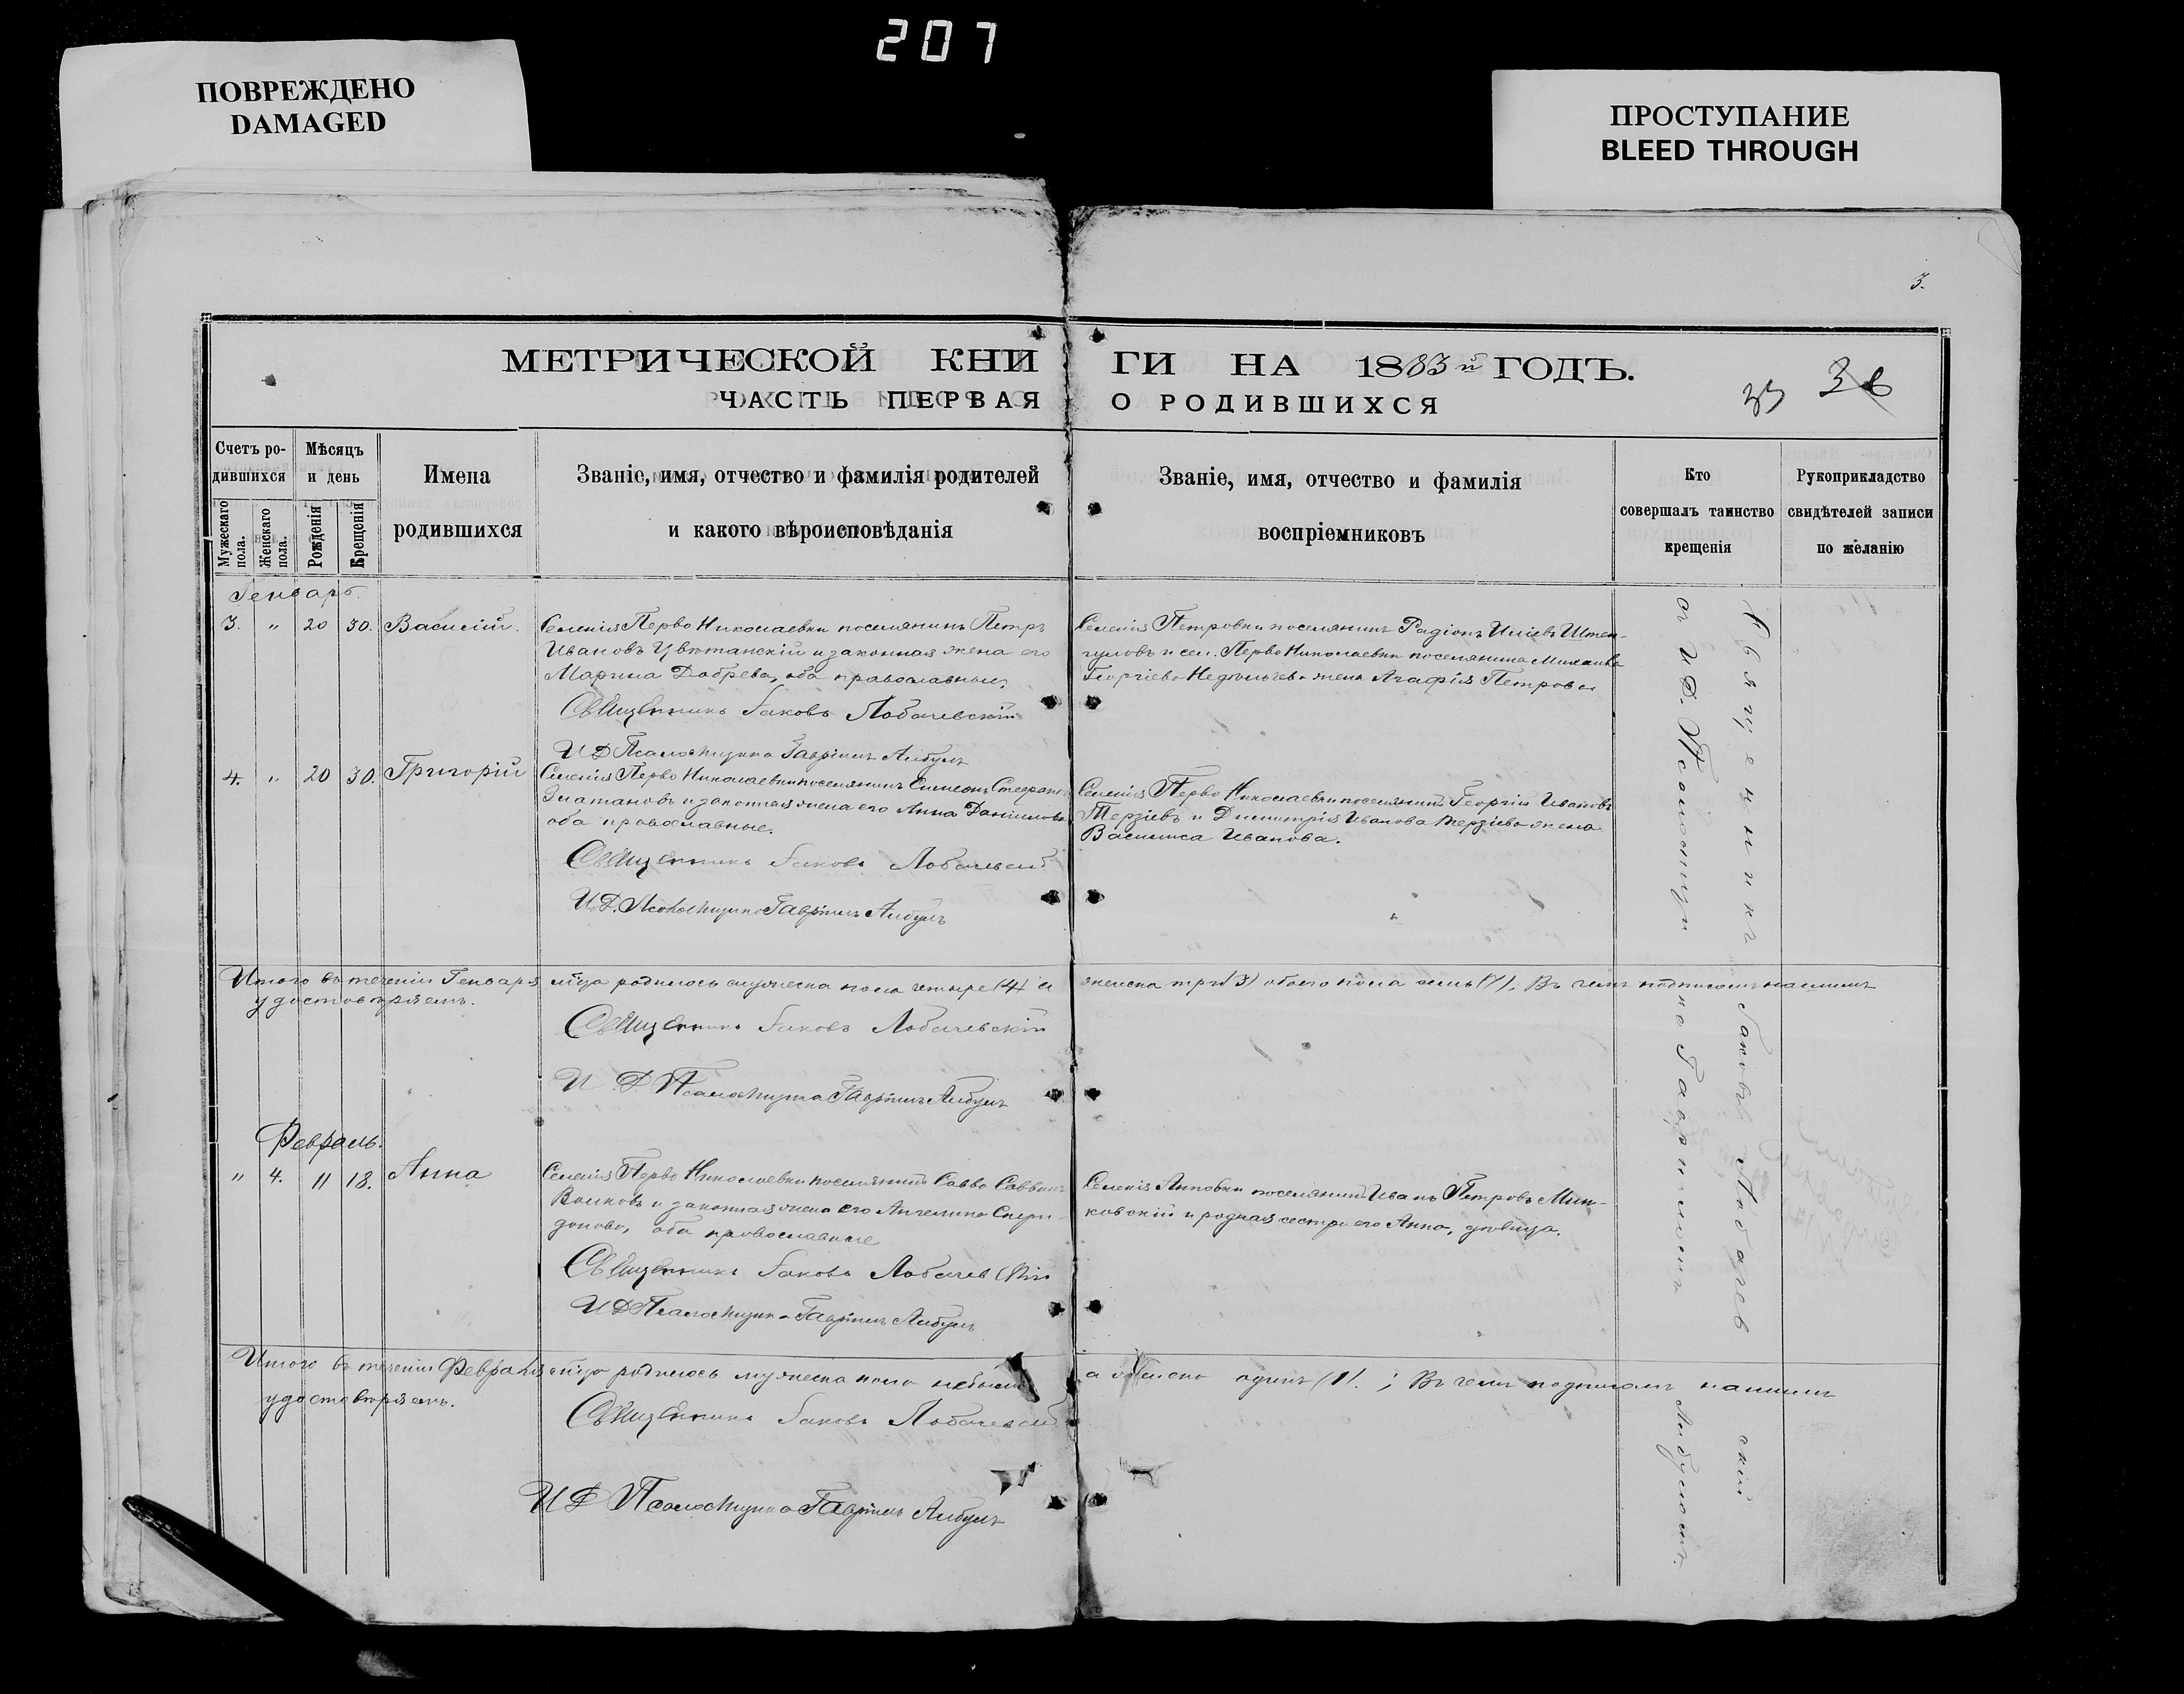 207
ПОВРЕЖДЕНО
DAMAGED
ПРОСТУПАНИЕ
BLEED THROUGH
3.
МЕТРИЧЕСКОЙ КНИ ГИ НА 1883й ГОДЪ.
ЧАСТЬ ПЕРВАЯ О РОДИВШИХСЯ
36
Счетъ ро-
дившихся
Мужескаго пола.
Женскаго пола.
Мѣсяцъ
и день
Рожденія
Крещенія
Имена
родившихся
Званіе, имя, отчество и фамилія родителей
и какого вѣроисповѣданія
Званіе, имя, отчество и фамилія
воспріемниковъ
Кто
совершалъ таинство
крещенія
Рукоприкладство
свидѣтелей записи
по желанію
Генварь.
3. " 20 30. Василій.
Селенія Перво Николаевки поселянинъ Петръ
Ивановъ Цвѣтанскій и законная жена его
Марина Добрева, оба православные,
Священникъ Іаковъ Лобачевскій
И Д Псаломщика Гавріилъ Либулъ
Селенія Петровки поселянинъ Радіонъ Иліевъ Штен-
гуловъ и сел. Перво Николаевки поселянина Михаила
Георгіева Недѣльчева жена Агафія Петрова
4. " 20 30. Григорій
Селенія Перво Николаевки поселянинъ Симеонъ Стефановъ
Златановъ и законная жена его Анна Даніилова
оба православные.
Священникъ Іаковъ Лобачевскій
И.Д. Псаломщика Гавріилъ Либулъ
Селенія Перво Николаевки поселянинъ Георгій Ивановъ
Терзіевъ и Димитрія Иванова Терзіева жена
Василиса Иванова.
Итого въ теченіи Генваря м͠ца родилось мужеска пола четыре (4) а женска три (3) обоего пола семь (7). Въ чемъ подписомъ нашимъ
удостовѣряемъ.
Священникъ Іаковъ Лобачевскій
И Д Псаломщика Гавріилъ Либулъ
Февраль.
" 4. 11 18. Анна
Селенія Перво Николаевки поселянинъ Савва Саввинъ
Волковъ и законная жена его Ангелина Спири-
донова, оба православные
Священникъ Іаковъ Лобачевскій
И Д Псаломщика Гавріилъ Либулъ
Селенія Анновки поселянинъ Иванъ Петровъ Мин-
ковскій и родная сестра его Анна, дѣвица.
Итого въ теченіи Февраля м͠ца родилось мужеска пола небыло а женска одинъ (1). ; Въ чемъ подписомъ нашимъ
удостовѣряемъ.
Священникъ Іаковъ Лобачевскій
И Д Псаломщика Гавріилъ Либулъ
Священникъ Іаковъ Лобачевскій
съ И.Д. Псаломщика Гавріиломъ Либуломъ.